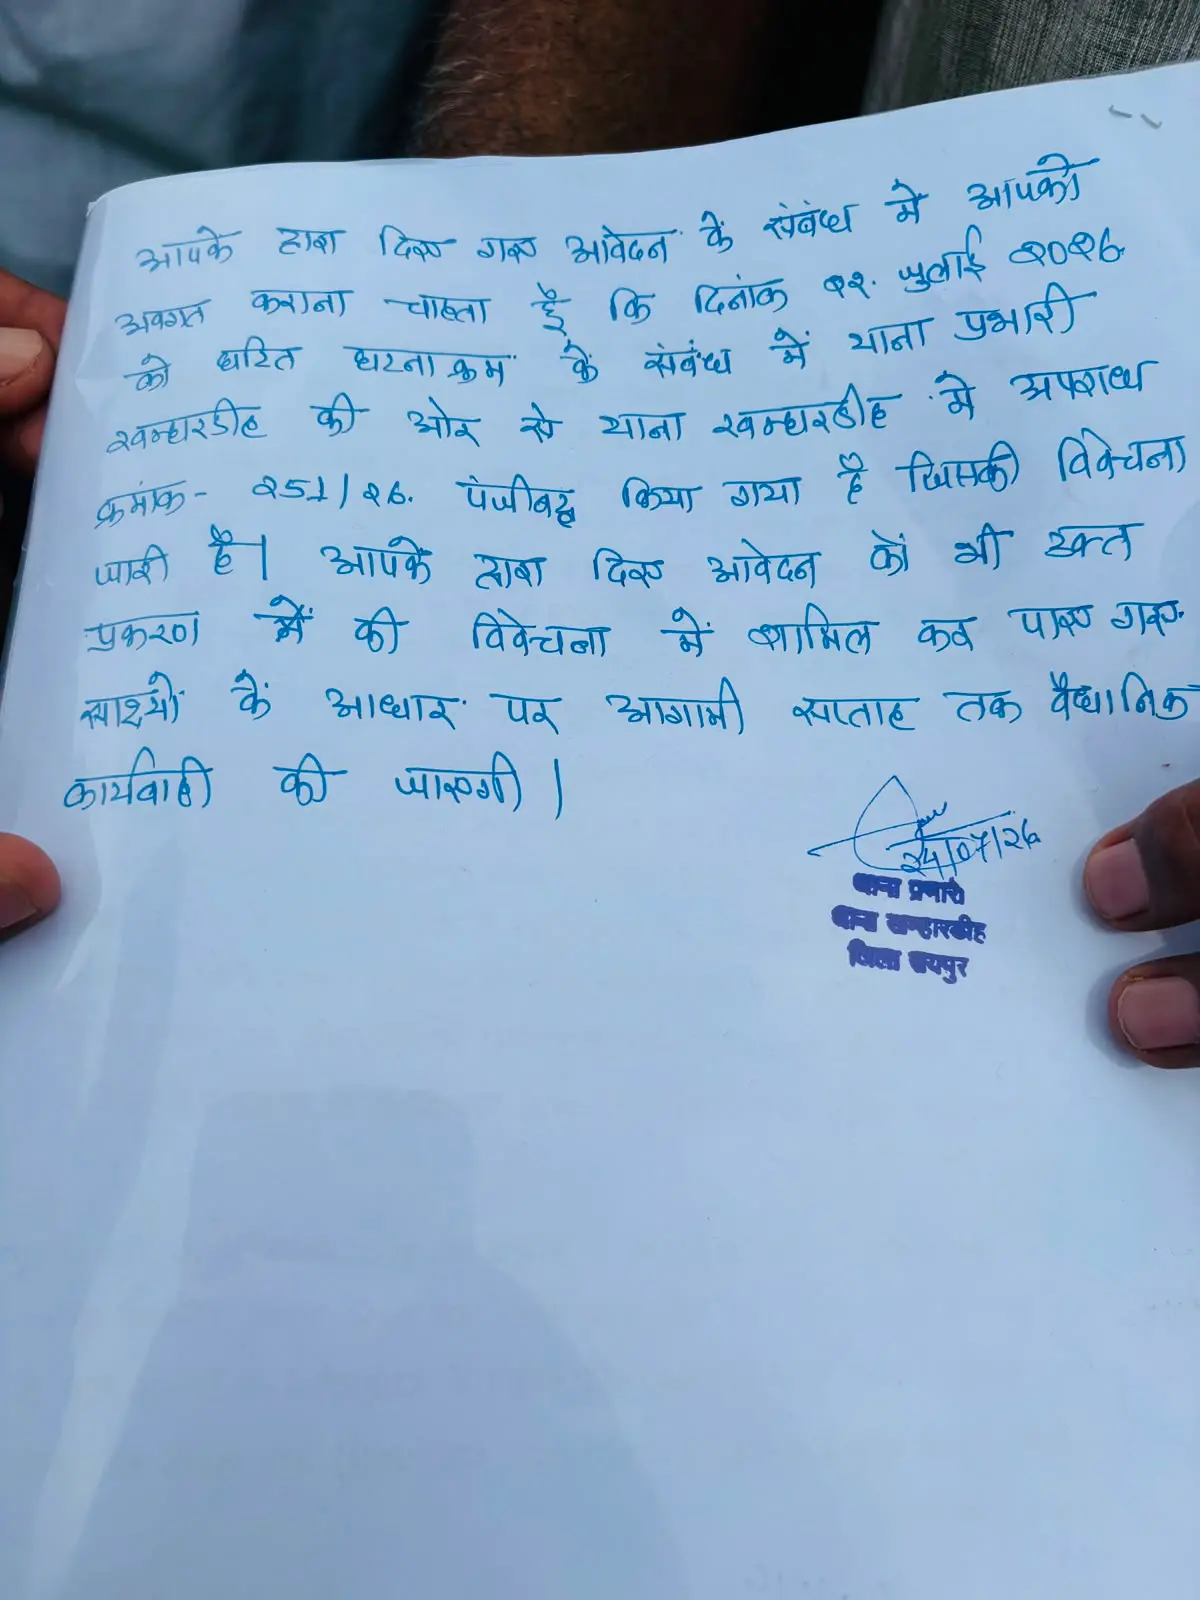 आपके द्वारा दिए गए आवेदन के संबंध में आपको
अवगत कराना चाहता हूँ कि दिनांक २२ जुलाई २०२६
को घटित घटनाक्रम के संबंध में थाना प्रभारी
खम्हारडीह की ओर से थाना खम्हारडीह में अपराध
क्रमांक - २51/२6. पंजीबद्ध किया गया है जिसकी विवेचना
जारी है। आपके द्वारा दिए आवेदन को भी उक्त
प्रकरण में की विवेचना में शामिल कर पाए गए
साक्ष्यों के आधार पर आगामी सप्ताह तक वैधानिक
कार्यवाही की जाएगी।
24/07/26
थाना प्रभारी
थाना खम्हारडीह
जिला रायपुर